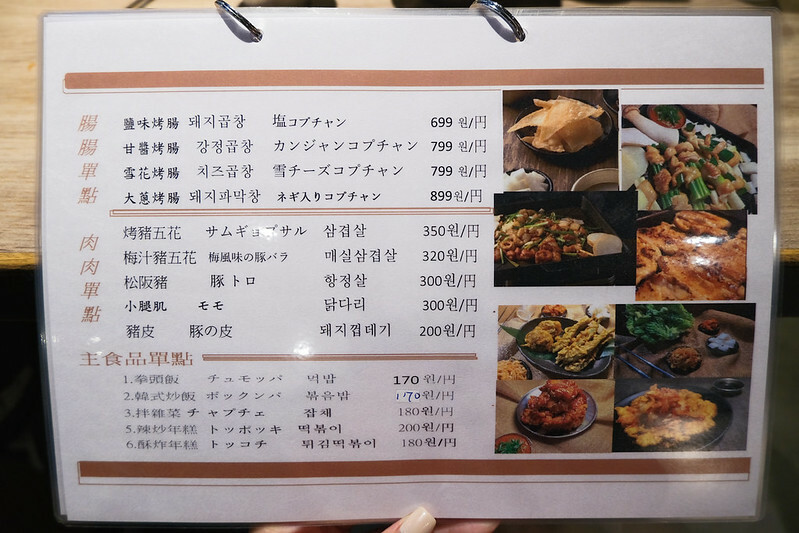 腸腸單點
鹽味烤腸 돼지곱창 塩コプチャン 699 원/円
甘醬烤腸 강정곱창 カンジャンコプチャン 799 원/円
雪花烤腸 치즈곱창 雪チーズコプチャン 799 원/円
大蔥烤腸 돼지파막창 ネギ入りコプチャン 899원/円
肉肉單點
烤豬五花 サムギョプサル 삼겹살 350원/円
梅汁豬五花 梅風味の豚バラ 매실삼겹살 320원/円
松阪豬 豚トロ 항정살 300원/円
小腿肌 モモ 닭다리 300원/円
豬皮 豚の皮 돼지껍데기 200원/円
主食品單點
1.拳頭飯 チュモッパ 먹밥 170 원/円
2.韓式炒飯 ボックンバ 볶음밥 170 원/円
3.拌雜菜 チャプチェ 잡채 180원/円
5.辣炒年糕 トッポッキ 떡볶이 200원/円
6.酥炸年糕 トッコチ 튀김떡볶이 180원/円